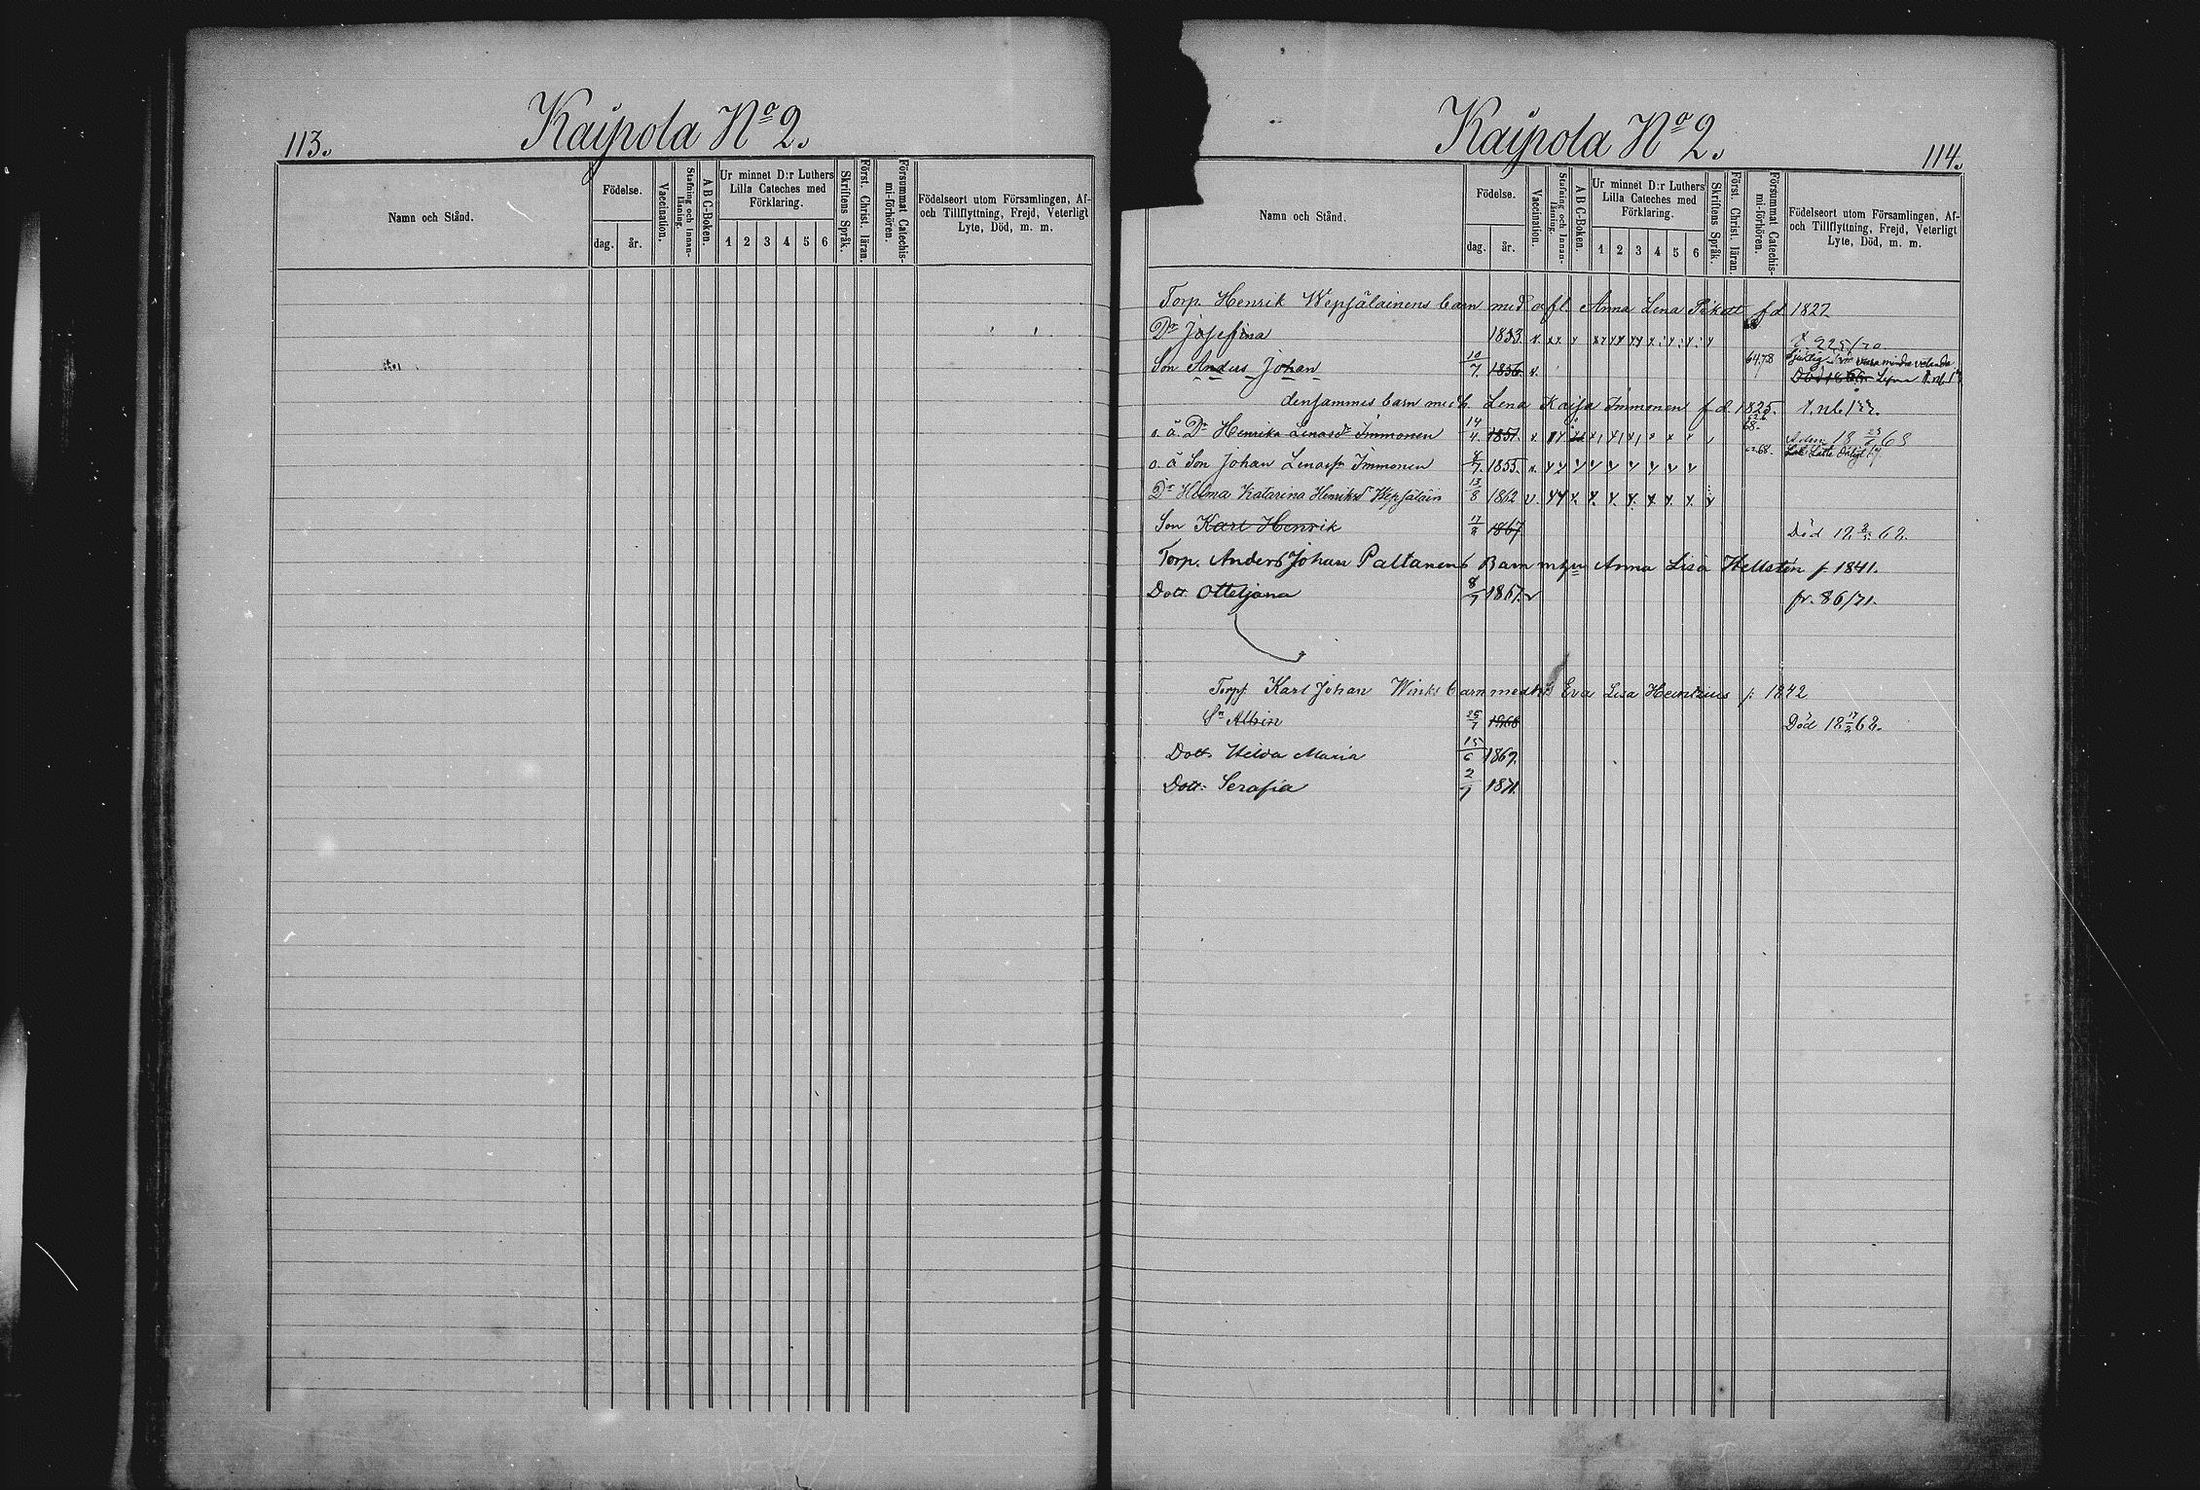 113.
Kaipola No 2.
Namn och Stånd.
Födelse.
dag.
år.
Vaccination.
Stafning och Innan-läsning.
A B C-Boken.
Ur minnet D:r Luthers
Lilla Cateches med
Förklaring.
1 2 3 4 5 6
Skriftens Språk.
Först. Christ. läran.
Försummat Catechis-mi-förhören.
Födelseort utom Församlingen, Af-
och Tillflyttning, Frejd, Veterligt
Lyte, Död, m. m.
Kaipola No 2.
114.
Namn och Stånd.
Födelse.
dag.
år.
Vaccination.
Stafning och Innan-läsning.
A B C-Boken.
Ur minnet D:r Luthers
Lilla Cateches med
Förklaring.
1 2 3 4 5 6
Skriftens Språk.
Först. Christ. läran.
Försummat Catechis-mi-förhören.
Födelseort utom Församlingen, Af-
och Tillflyttning, Frejd, Veterligt
Lyte, Död, m. m.
Torp. Henrik Wepsäläinens barn med afl. Anna Lena f.d 1827
Dr Josefina 1853
Son Anders Johan 10/7 1856
densammes barn med h. Lena Kaisa Immonen f.d. 1825.
o. ä Dr Henrika Lenasdr Immonen 14/4 1851
o. ä Son Johan Lenasn Immonen 1855
Dr Helma Katarina Henriksdr Wepsäläin 13/8 1862
Son Karl Henrik 1867 Död
Torp. Anders Johan Paltanens Barn m hu Anna Lisa Hellsten f. 1841.
Dott. Otteljana 8/7 1867 fr. 86/71.
Torp. Karl Johan Winks barn med h. Eva Lisa Heintzius f. 1842
Sn Albin 25/1 1868 Död 18 17/2 68.
Dott. Helda Maria 15/6 1869
Dott. Serafia 2/7 1871